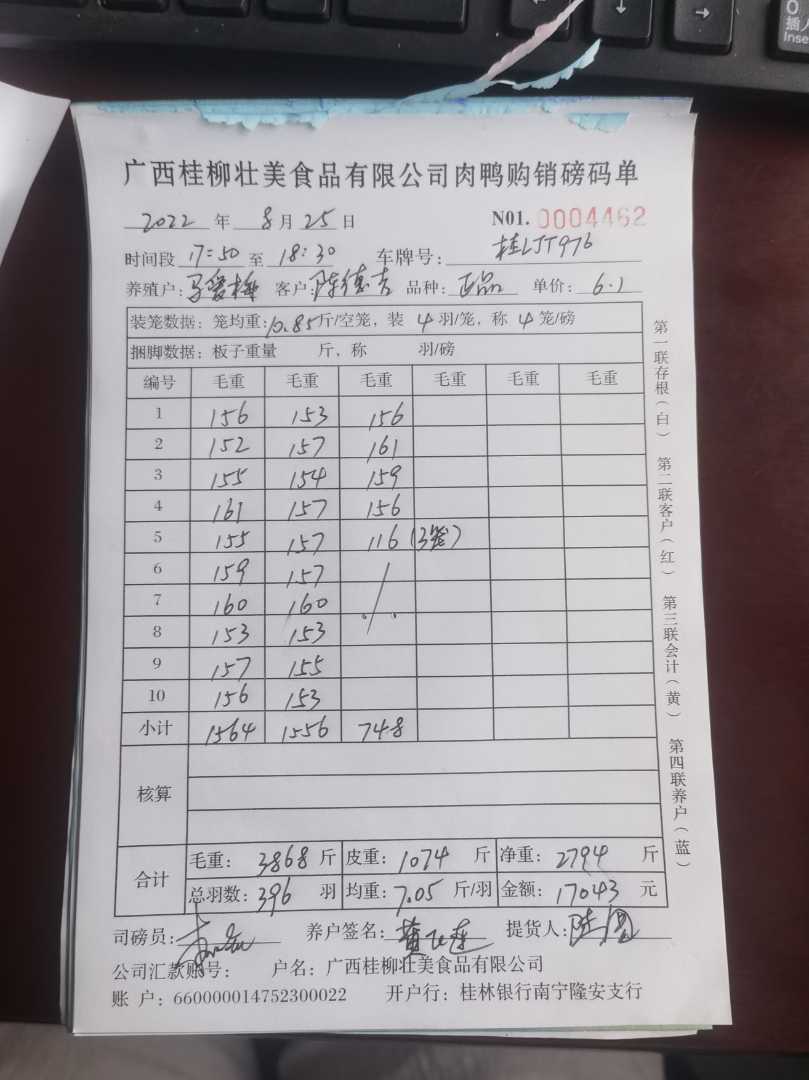 广西桂柳壮美食品有限公司肉鸭购销磅码单
2022 年 8 月 25 日 N01. 0004462
时间段 17:50 至 18:30 车牌号: 桂LJT976
养殖户: 马爱梅 客户: 陈德吉 品种: 正品 单价: 6.1
装笼数据: 笼均重: 10.85斤/空笼, 装 4 羽/笼, 称 4 笼/磅
捆脚数据: 板子重量 斤, 称 羽/磅
编号 毛重 毛重 毛重 毛重 毛重 毛重
1 156 153 156
2 152 157 161
3 155 154 159
4 161 157 156
5 155 157 116 (3笼)
6 159 157
7 160 160
8 153 153
9 157 155
10 156 153
小计 1564 1556 748
核算
合计 毛重: 3868 斤 皮重: 1074 斤 净重: 2794 斤
总羽数: 396 羽 均重: 7.05 斤/羽 金额: 17043 元
司磅员: 养户签名: 黄 莲 提货人: 陆
公司汇款账号: 户名: 广西桂柳壮美食品有限公司
账 户: 660000014752300022 开户行: 桂林银行南宁隆安支行
第一联存根(白) 第二联客户(红) 第三联会计(黄) 第四联养户(蓝)
插入
Inse
0